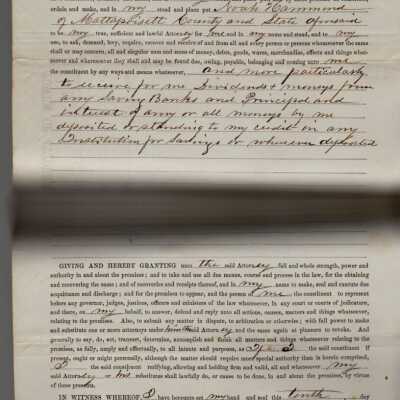 ordain and make, and in my stead and place put Noah Hammond
of Mattapoisett County and State aforesaid
to be my true, sufficient and lawful Attorney for me and in my name and stead, and to my
use, to ask, demand, levy, require, recover and receive of and from all and every person or persons whomsoever the same
shall or may concern, all and singular sum and sums of money, debts, goods, wares, merchandise, effects and things, whatsoever
and wheresoever they shall and may be found due, owing, payable, belonging and coming unto me
the constituent by any ways and means whatsoever, and more particularly
to receive for me Dividends & moneys from
any Saving Banks and Principal and
interest of any or all moneys by me
deposited or standing to my credit in any
Institution for Savings or wherever deposited
GIVING AND HEREBY GRANTING unto the said Attorney full and whole strength, power and
authority in and about the premises; and to take and use all due means, course and process in the law, for the obtaining
and recovering the same; and of recoveries and receipts thereof, and in my name to make, seal and execute due
acquittance and discharge; and for the premises to appear, and the person of me the constituent to represent
before any governor, judges, justices, officers and ministers of the law whatsoever, in any court or courts of judicature,
and there, on my behalf, to answer, defend and reply unto all actions, causes, matters and things whatsoever,
relating to the premises. Also, to submit any matter in dispute, to arbitration or otherwise; with full power to make
and substitute one or more attorneys under said Attorney and the same again at pleasure to revoke. And
generally to say, do, act, transact, determine, accomplish and finish all matters and things whatsoever relating to the
premises, as fully, amply and effectually, to all intents and purposes, as I the said constituent if
present, ought or might personally, although the matter should require more special authority than is herein comprised,
I the said constituent ratifying, allowing and holding firm and valid, all and whatsoever my
said Attorney or his substitutes shall lawfully do, or cause to be done, in and about the premises, by virtue
of these presents.
IN WITNESS WHEREOF, I have hereunto set my hand and seal this tenth day